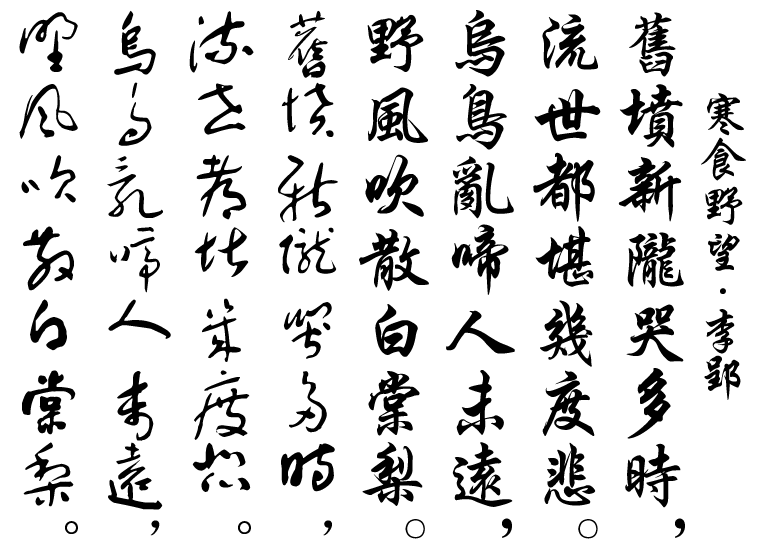 寒食野望·李郢
舊墳新隴哭多時，
流世都堪幾度悲。
烏鳥亂啼人未遠，
野風吹散白棠梨。
舊墳新隴哭多時，
流世都堪幾度悲。
烏鳥亂啼人未遠，
野風吹散白棠梨。